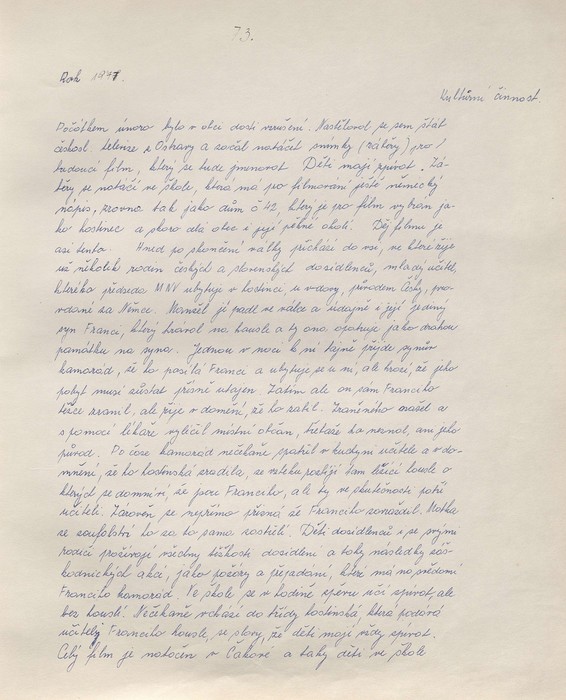 73.
Rok 1978.
Kulturní činnost.
Počátkem února bylo v obci dosti vzrušení. Nastěhoval se sem štáb
českosl. televize z Ostravy a začal natáčet snímky (záběry) pro
budoucí film, který se bude jmenovat Děti mají zpívat. Zá-
běry se natáčí ve škole, která má pro filmování ještě německý
nápis, zrovna tak jako dům č 42, který je pro film vybrán ja-
ko hostinec a skoro celá obec i její pěkné okolí. Děj filmu je
asi tento. Hned po skončení války přichází do vsi, ve které žije
už několik rodin českých a slovenských dosídlenců, mladý učitel,
kterého předseda MNV ubytuje v hostinci, u vdovy, původem Češky, pro-
vdané za Němce. Manžel jí padl ve válce a údajně i její jediný
syn Franci, který hrával na housle a ty ona opatruje jako drahou
památku na syna. Jednou v noci k ní tajně přijde synův
kamarád, že ho posílá Franci a ubytuje se u ní, ale hrozí, že jeho
pobyt musí zůstat přísně utajen. Zatím ale on sám Franciho
těžce zranil, ale žije v domění, že ho zabil. Zraněného našel a
s pomocí lékaře vyléčil místní občan, třebaže ho neznal, ani jeho
původ. Po čase kamarád nečekaně spatřil v kuchyni učitele a v do-
mnění, že ho hostinská zradila, se vzteku postřílí tam ležící housle o
kterých se domníval, že jsou Franciho, ale ty ve skutečnosti patří
učiteli. Zároveň se nepřímo přizná že Franciho zavraždil. Matka
se zoufalství ho za to sama zastřelí. Děti dosídlenců i se svými
rodiči prožívají všechny těžkosti dosídlení a taky následky záš-
kodnických akcí, jako požáry a přepadání, které má na svědomí
Franciho kamarád. Ve škole se v hodině zpěvu učí zpívat, ale
bez houslí. Nečekaně vchází do třídy hostinská, která podává
učiteli Franciho housle, se slovy, že děti mají vždy zpívat.
Celý film je natočen v Čakové a taky děti ve škole